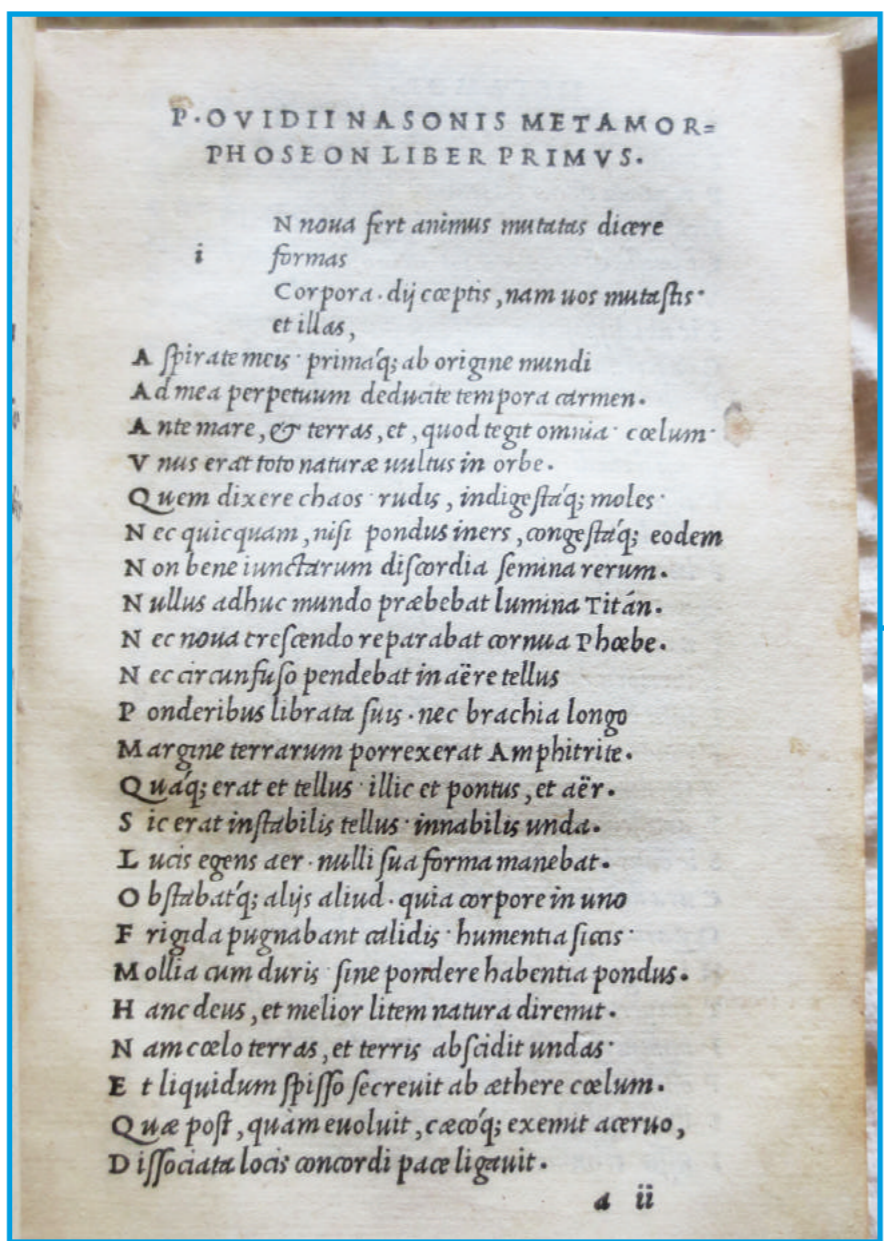 P · OVIDII NASONIS METAMOR=
PHOSEON LIBER PRIMVS.
N noua fert animus mutatas dicere
i formas
Corpora · dij cœptis, nam uos mutaſtis ·
et illas,
A ſpirate meis · primaq́; ab origine mundi
A d mea perpetuum deducite tempora carmen.
A nte mare, & terras, et, quod tegit omnia · cœlum ·
V nus erat toto naturæ uultus in orbe.
Q uem dixere chaos · rudis, indigeſtaq́; moles ·
N ec quicquam, niſi pondus iners, congeſtaq́; eodem
N on bene iunctarum diſcordia ſemina rerum.
N ullus adhuc mundo præbebat lumina Titán.
N ec noua creſcendo reparabat cornua Phœbe.
N ec circunfuſo pendebat in aëre tellus
P onderibus librata ſuis · nec brachia longo
M argine terrarum porrexerat Amphitrite.
Q uáq; erat et tellus · illic et pontus, et aër.
S ic erat inſtabilis tellus · innabilis unda.
L ucis egens aer · nulli ſua forma manebat.
O bſtabatq́; alijs aliud · quia corpore in uno
F rigida pugnabant calidis · humentia ſiccis ·
M ollia cum duris · ſine pondere habentia pondus.
H anc deus, et melior litem natura diremit.
N am cœlo terras, et terris abſcidit undas ·
E t liquidum ſpiſſo ſecreuit ab æthere cœlum.
Q uæ poſt, quàm euoluit, cæcoq́; exemit aceruo,
D iſſociata locis concordi pace ligauit.
a ii